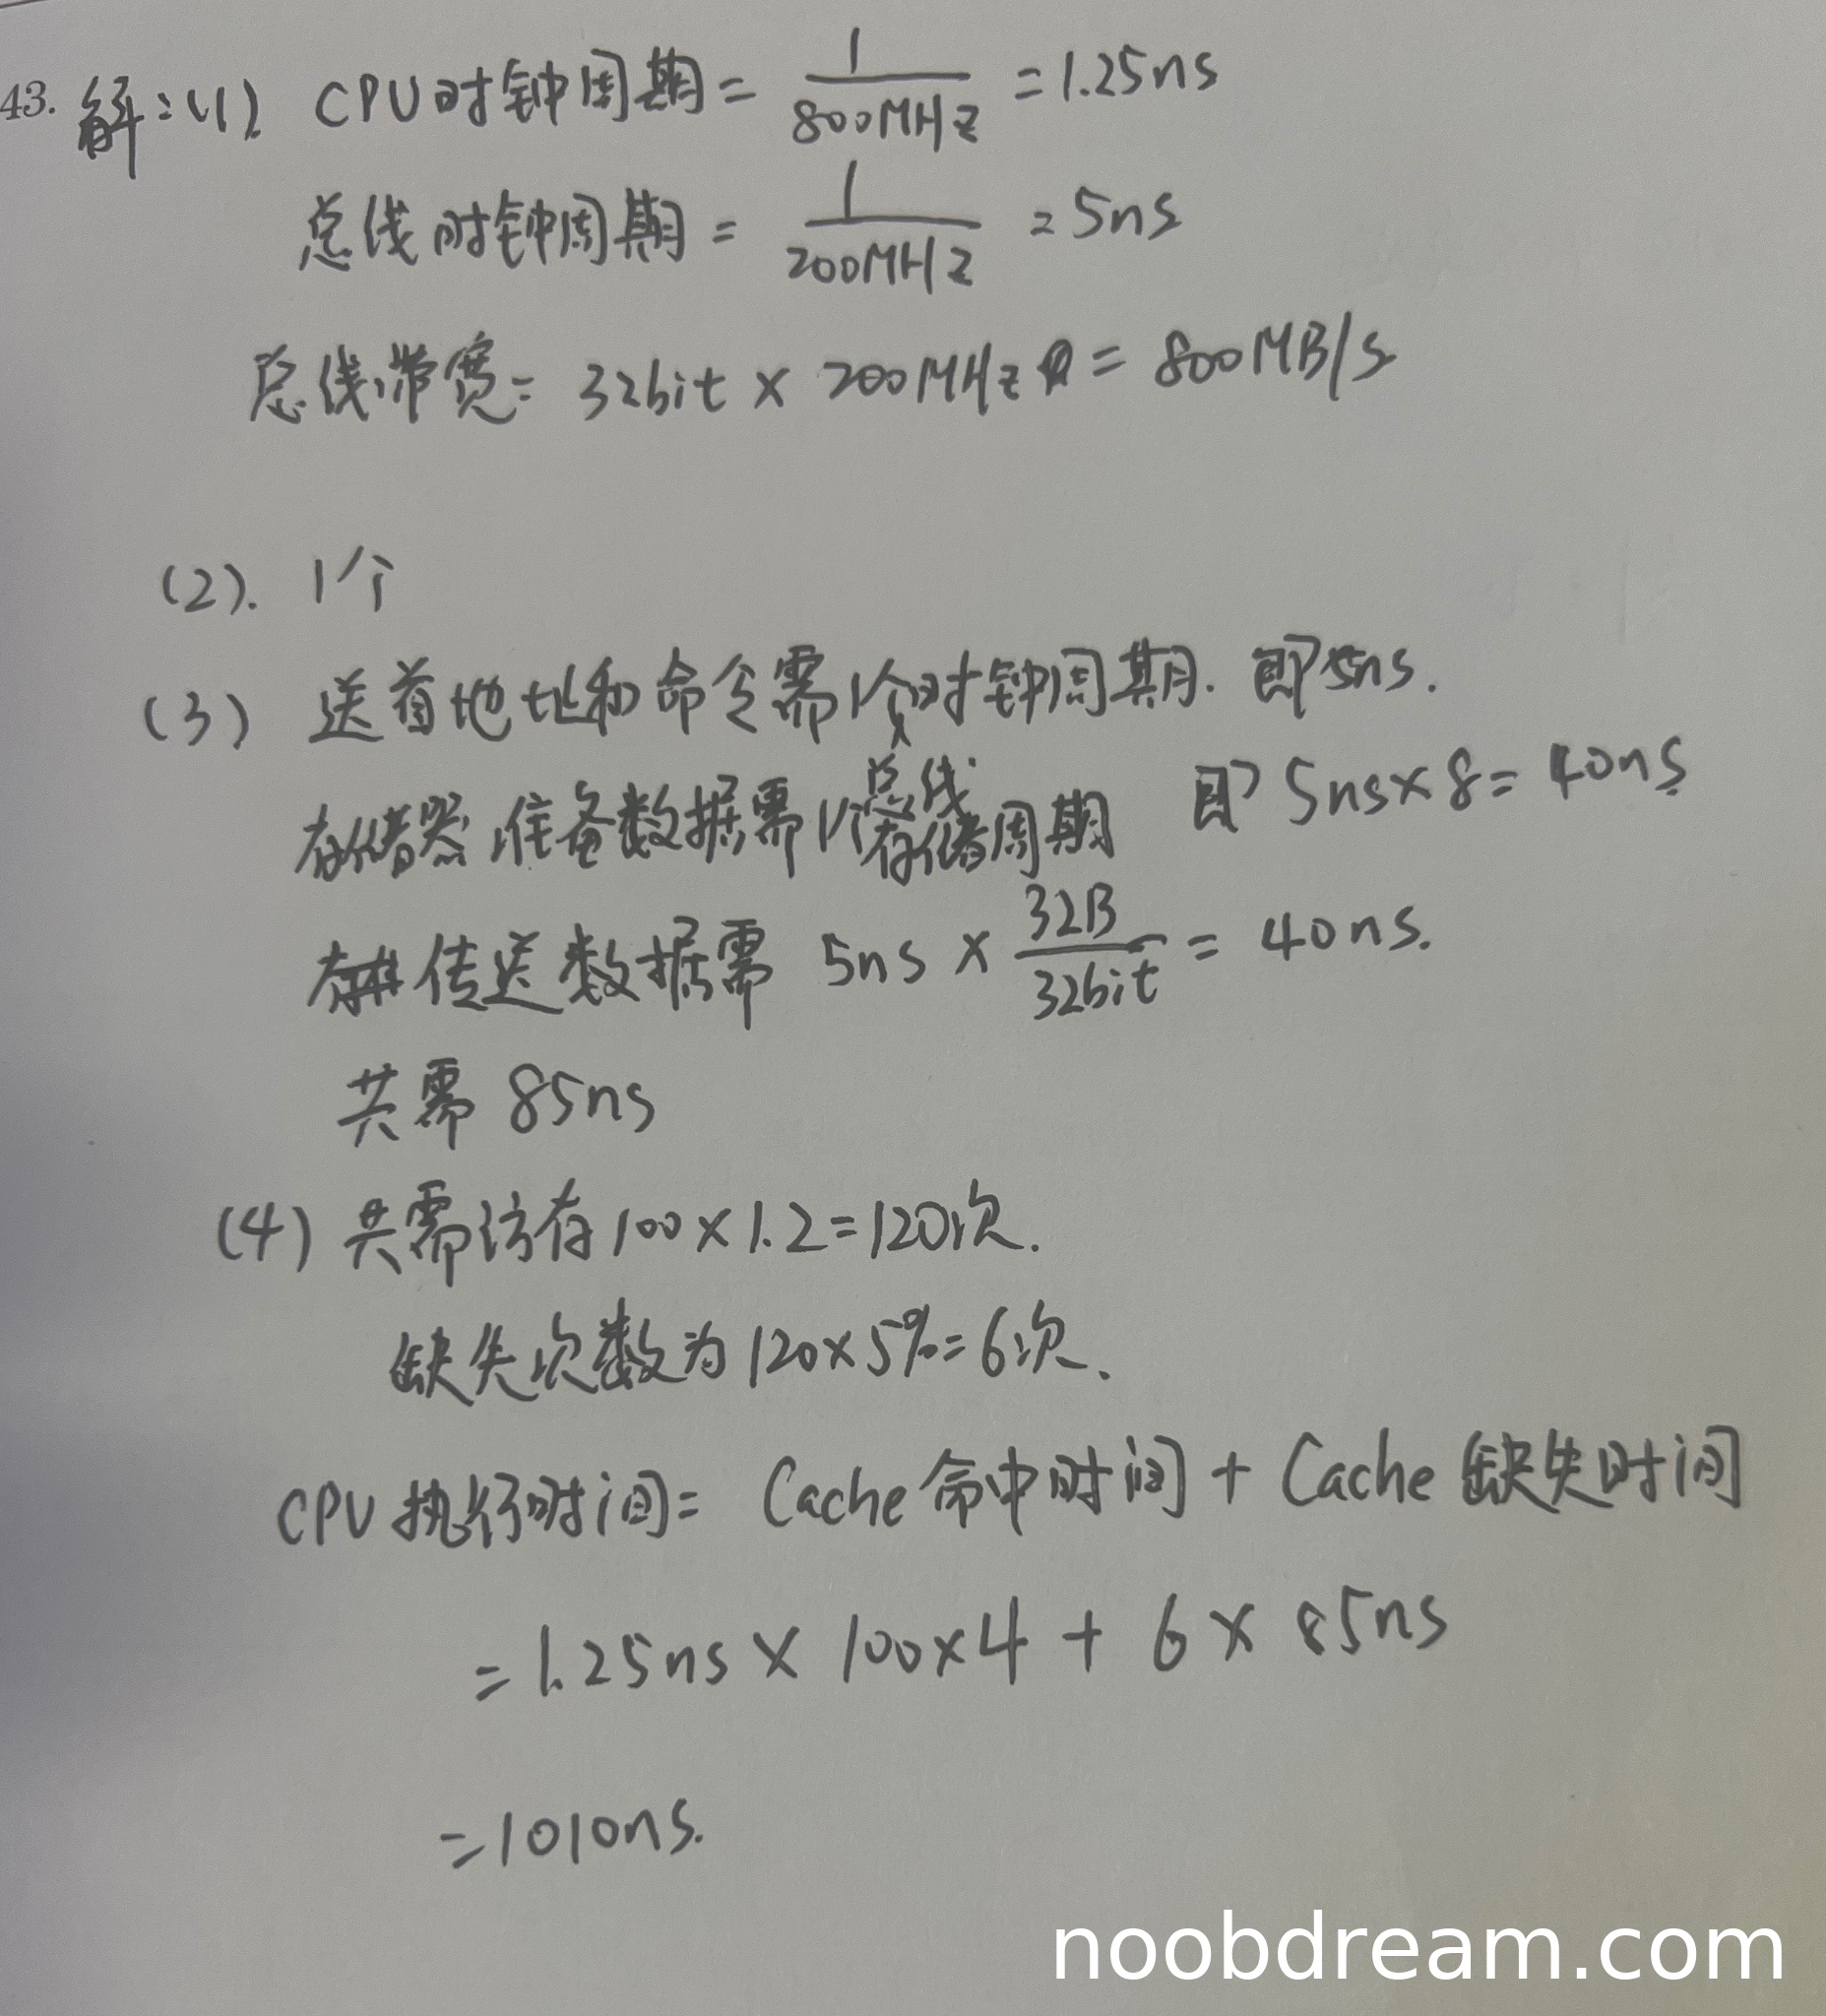 43. 解:(1). CPU时钟周期 = 1/800MHz = 1.25ns
总线时钟周期 = 1/200MHz = 5ns
总线带宽 = 32bit × 200MHz = 800MB/s
(2). 1个
(3) 送首地址和命令需1个时钟周期. 即5ns.
存储器准备数据需1个总线存储周期 即5ns×8=40ns
传送数据需 5ns × 32B/32bit = 40ns.
共需 85ns
(4) 共需访存100×1.2=120次.
缺失次数为120×5%=6次.
CPU执行时间= Cache命中时间 + Cache缺失时间
=1.25ns × 100×4 + 6 × 85ns
=1010ns.
noobdream.com